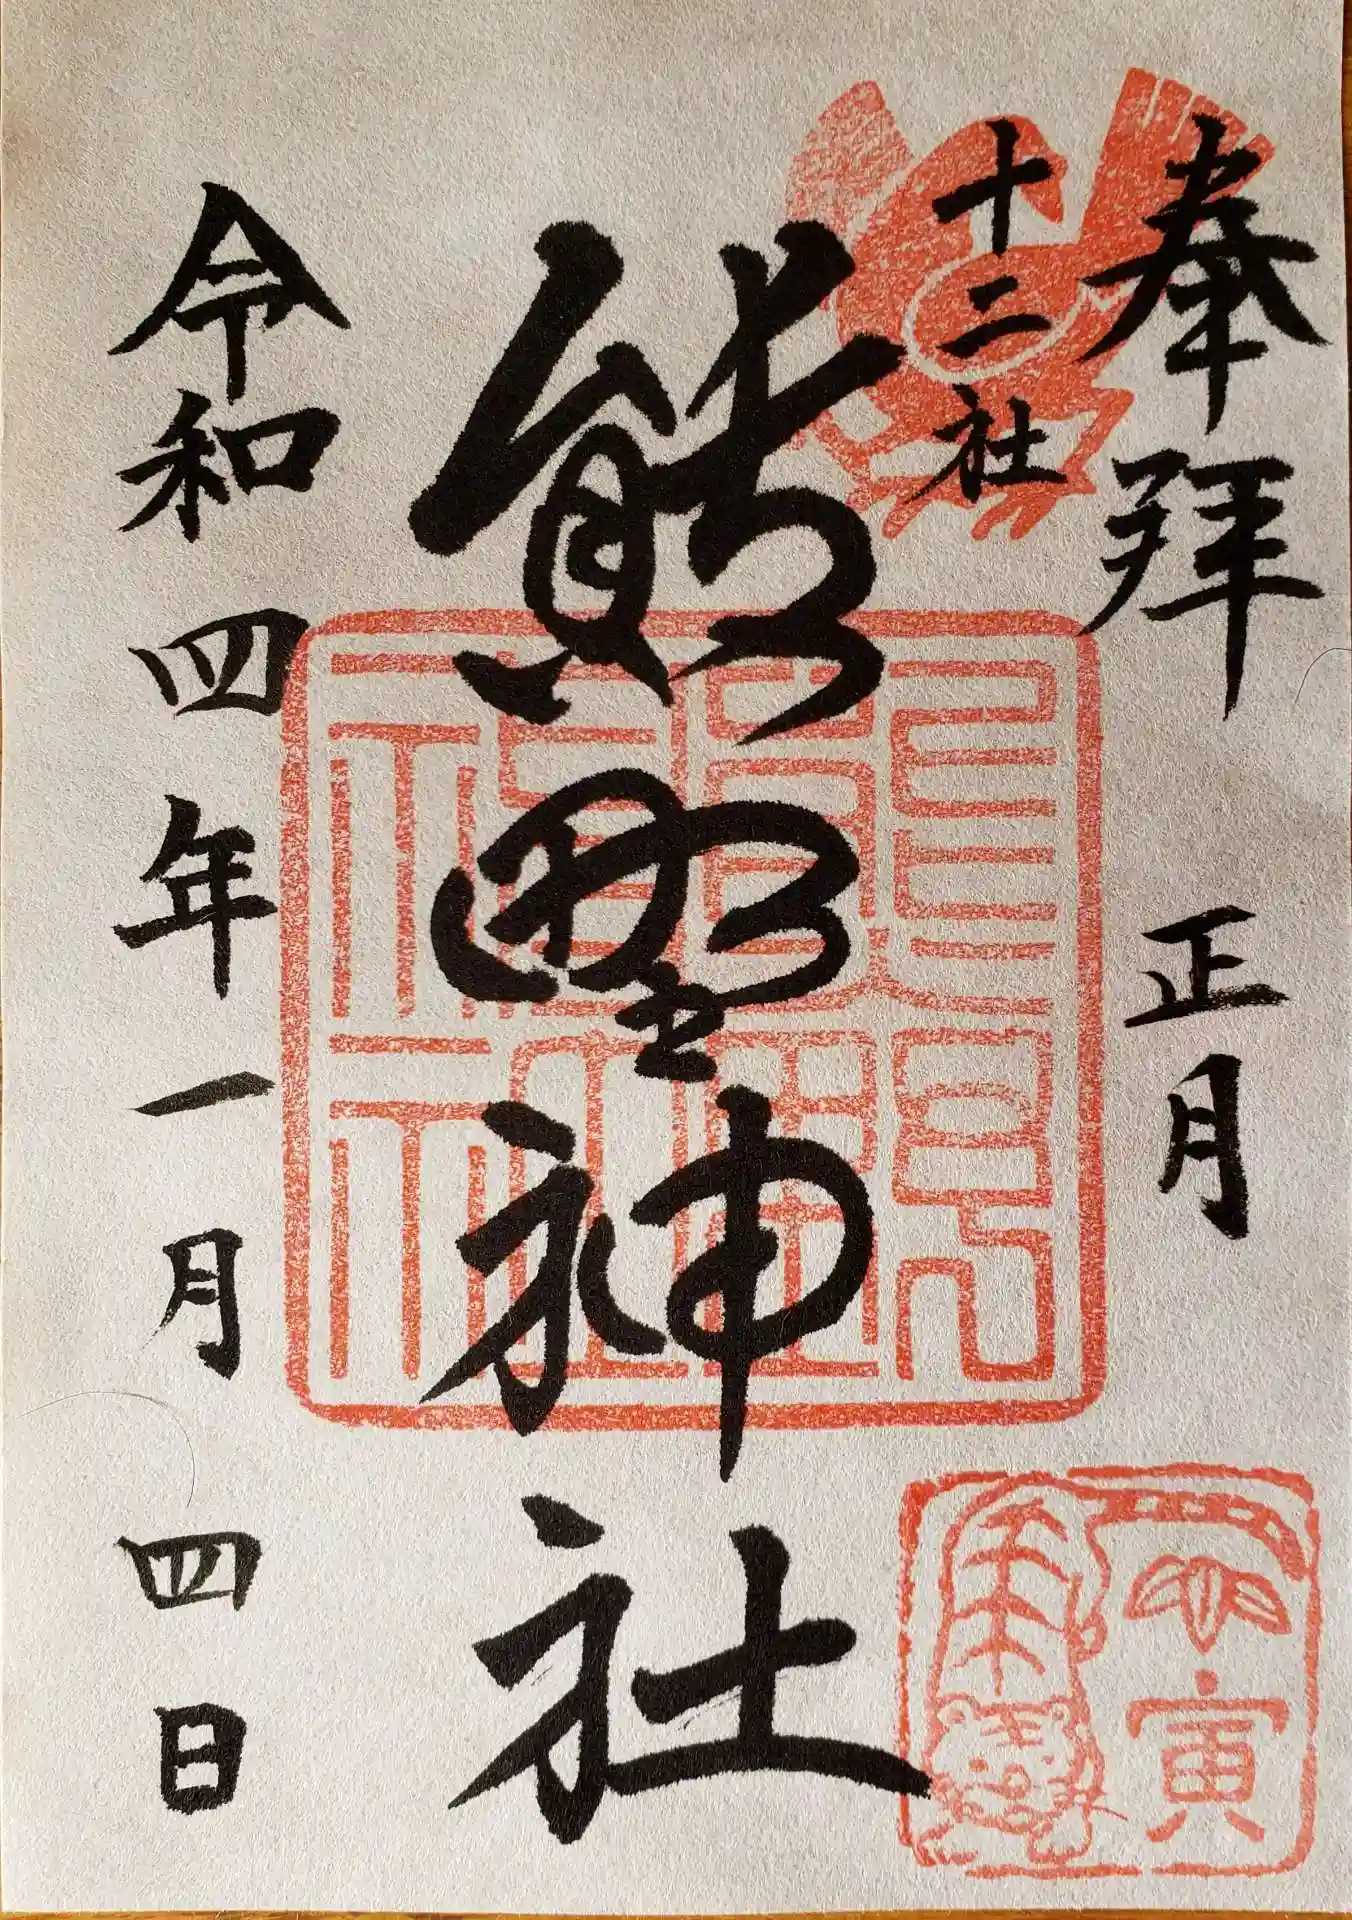 奉拝 正月
十二社
熊野神社
令和四年一月四日
寅